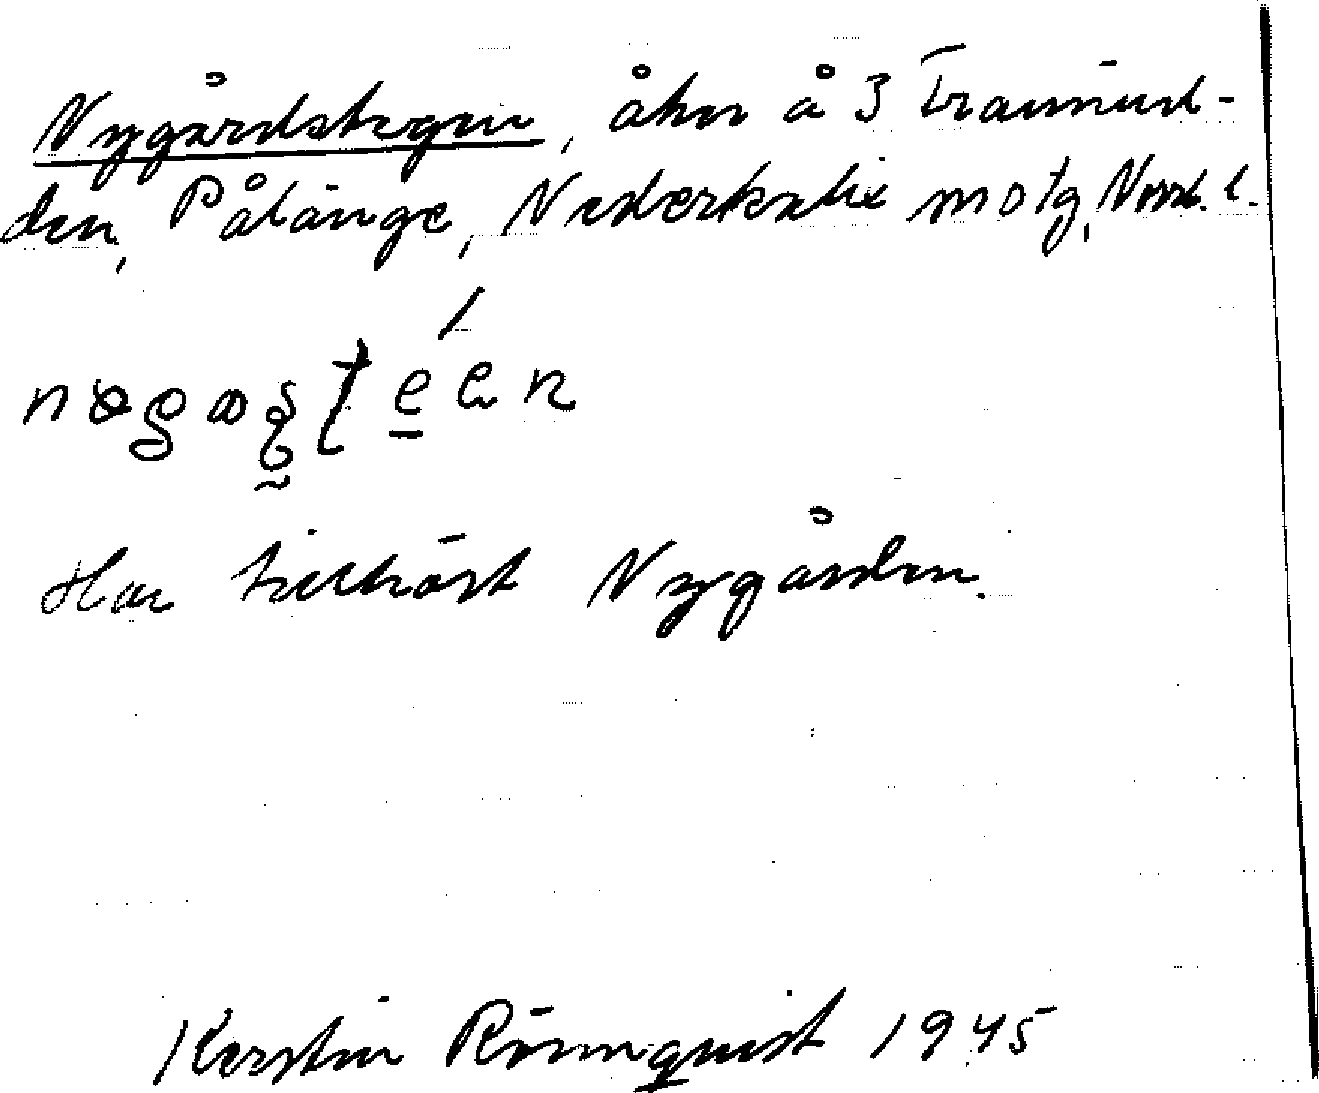 Nygårdstegen, åker å 3 Traneud-
den, Pålänge, Nederkalix sn o tg, Nord. l.
Har tillhört Nygården.
Kerstin Rönnquist 1945